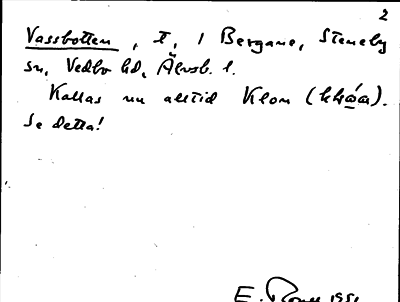 2
Vassbotten, t, 1 Bergane, Steneby
sn, Vedbo hd, Älvsb. l.
Kallas nu alltid Klon
Se detta!
E. 1951